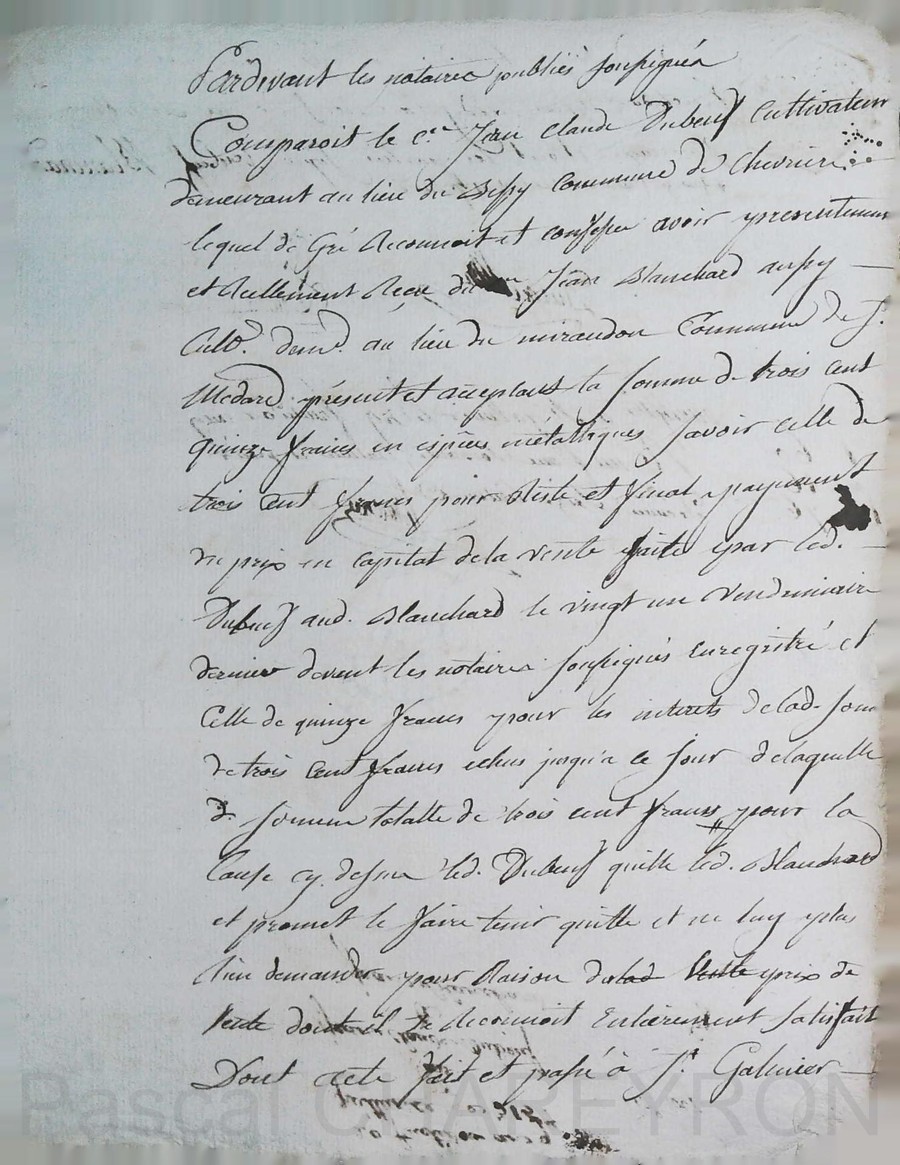 Pardevant les notaires publics soussignés
Comparoit le c.en Jean Claude Dubeuf Cultivateur
demeurant au lieu du Bessy Commune de Chevriere
lequel de Gré Reconnoit et confesse avoir presentement
et Reellement Recu du Jean Blanchard aussy
Cult.r dem.t au lieu du mirandon Commune de S.
Medard présent et acceptant la somme de trois cent
quinze francs en espèces métalliques savoir celle de
trois cent francs pour Reste et final payement
du prix en capital de la vente faite par led.
Dubeuf aud. Blanchard le vingt un Vendemiaire
dernier devant les notaires soussignés Enregistré et
Celle de quinze francs pour les interets de lad. som
de trois cent francs echus jusqu'a ce jour de laquelle
d. somme totalle de trois cent francs # pour la
Cause cy. dessus led. Dubeuf quitte led. Blanchard
et promet le faire tenir quitte et ne luy plus
Rien demander pour Raison dud prix de
Vente dont il se Reconnoit Entierement satisfait
Dont acte fait et passé à S.t Galmier
Pascal CHAREYRON